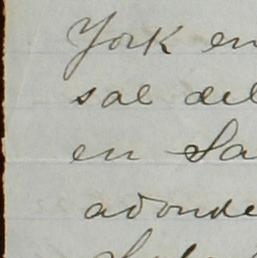 York en
sal del
en Sa
adonde